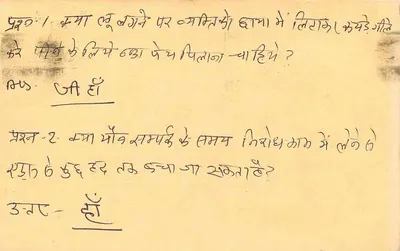 प्रश्न:1. क्या लू लगने पर व्यक्ति को छाया में लिटाकर कपड़े गीले
करे के लिये ठंडा पेय पिलाना चाहिये?
Ans. जी हाँ
प्रश्न-2. क्या यौन सम्पर्क के समय निरोध काम में लेने से
एड्स से कुछ हद तक बचा जा सकता है?
उत्तर- हाँ